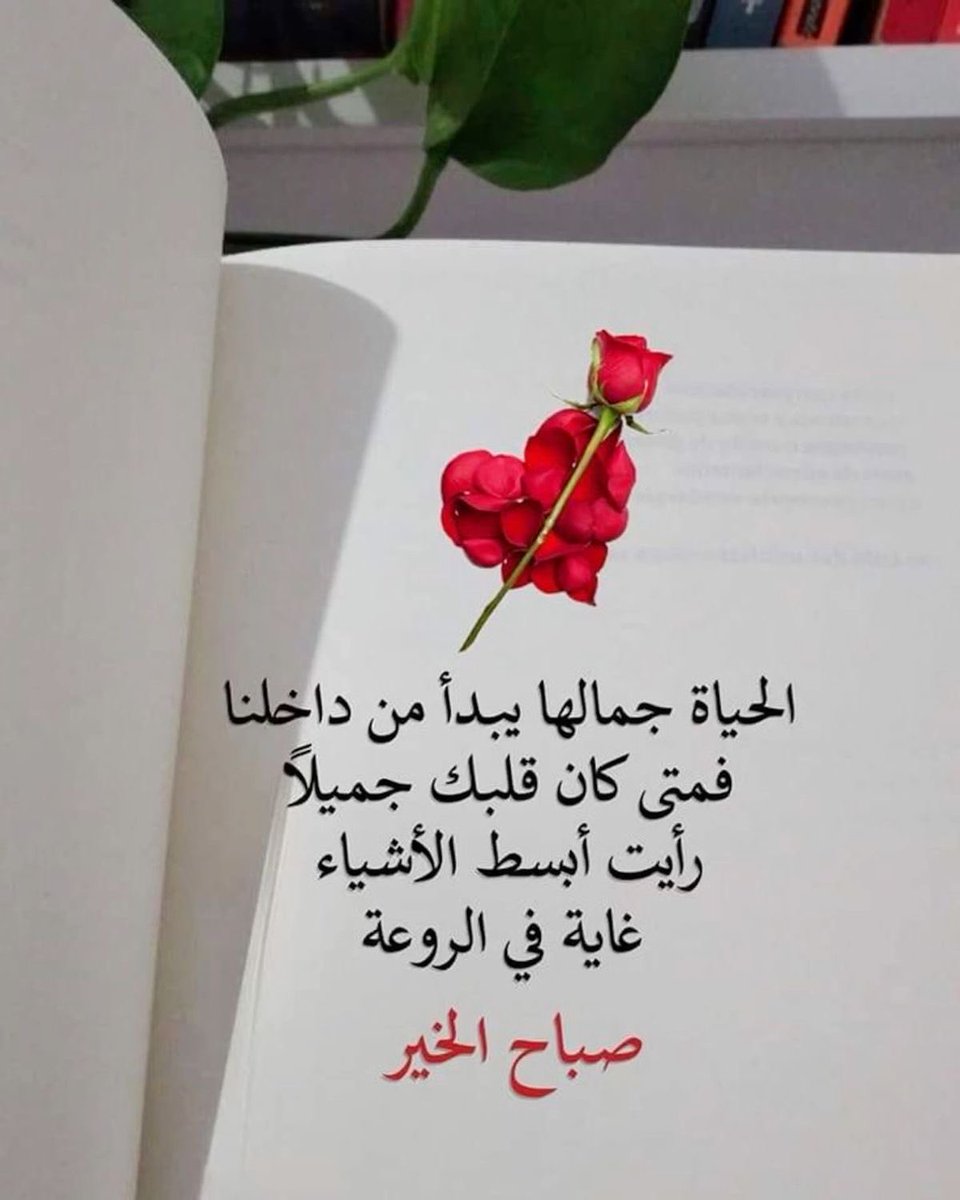 الحياة جمالها يبدأ من داخلنا
فمتى كان قلبك جميلاً
رأيت أبسط الأشياء
غاية في الروعة
صباح الخير